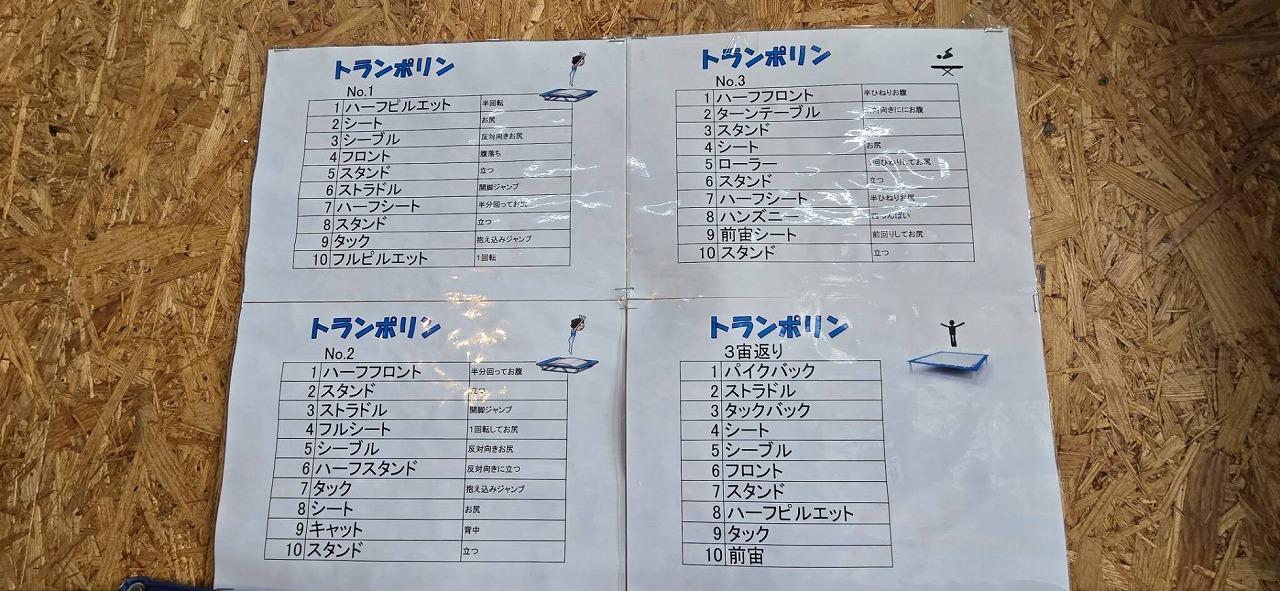 トランポリン
No.1
1 ハーフピルエット 半回転
2 シート お尻
3 シーブル 反対向きお尻
4 フロント 腹落ち
5 スタンド 立つ
6 ストラドル 開脚ジャンプ
7 ハーフシート 半分回ってお尻
8 スタンド 立つ
9 タック 抱え込みジャンプ
10 フルピルエット 1回転
トランポリン
No.3
1 ハーフフロント 半ひねりお腹
2 ターンテーブル 対向きににお腹
3 スタンド
4 シート お尻
5 ローラー 回ひねりしてお尻
6 スタンド 立つ
7 ハーフシート 半ひねりお尻
8 ハンズニー つんばい
9 前宙シート 前回りしてお尻
10 スタンド 立つ
トランポリン
No.2
1 ハーフフロント 半分回ってお腹
2 スタンド 立つ
3 ストラドル 開脚ジャンプ
4 フルシート 1回転してお尻
5 シーブル 反対向きお尻
6 ハーフスタンド 反対向きに立つ
7 タック 抱え込みジャンプ
8 シート お尻
9 キャット 背中
10 スタンド 立つ
トランポリン
3宙返り
1 パイクバック
2 ストラドル
3 タックバック
4 シート
5 シーブル
6 フロント
7 スタンド
8 ハーフピルエット
9 タック
10 前宙